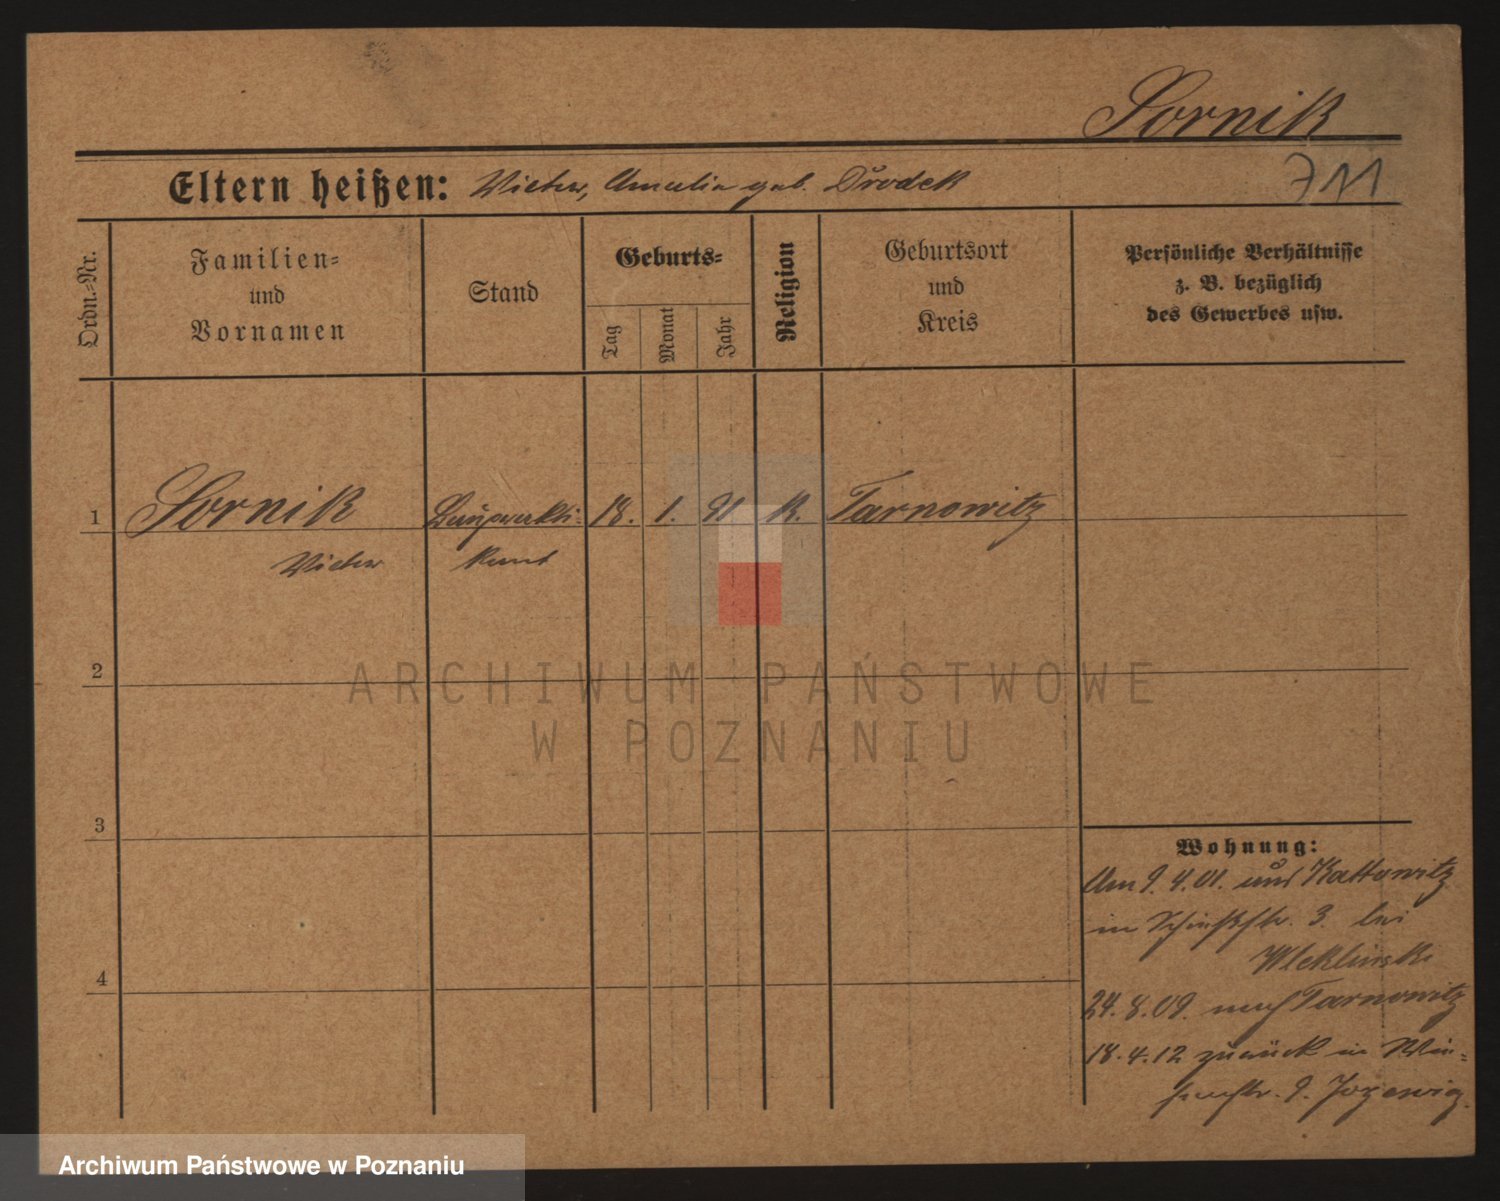 Sornik
711
Eltern heißen: Victor, Amalie geb. Drodek
Ordn.-Nr.
Familien-
und
Vornamen
Stand
Geburts-
Tag
Monat
Jahr
Religion
Geburtsort
und
Kreis
Persönliche Verhältnisse
z. B. bezüglich
des Gewerbes usw.
1 Sornik 18. 1. 91 k. Tarnowitz
Victor kant
2
3
4
Wohnung:
Am 9.4.01. aus Kattowitz
in Schießstr. 3. bei
Wleklinski
24.8.09. nach Tarnowitz
18.4.12 zurück in
9.
ARCHIWUM PAŃSTWOWE
W POZNANIU
Archiwum Państwowe w Poznaniu